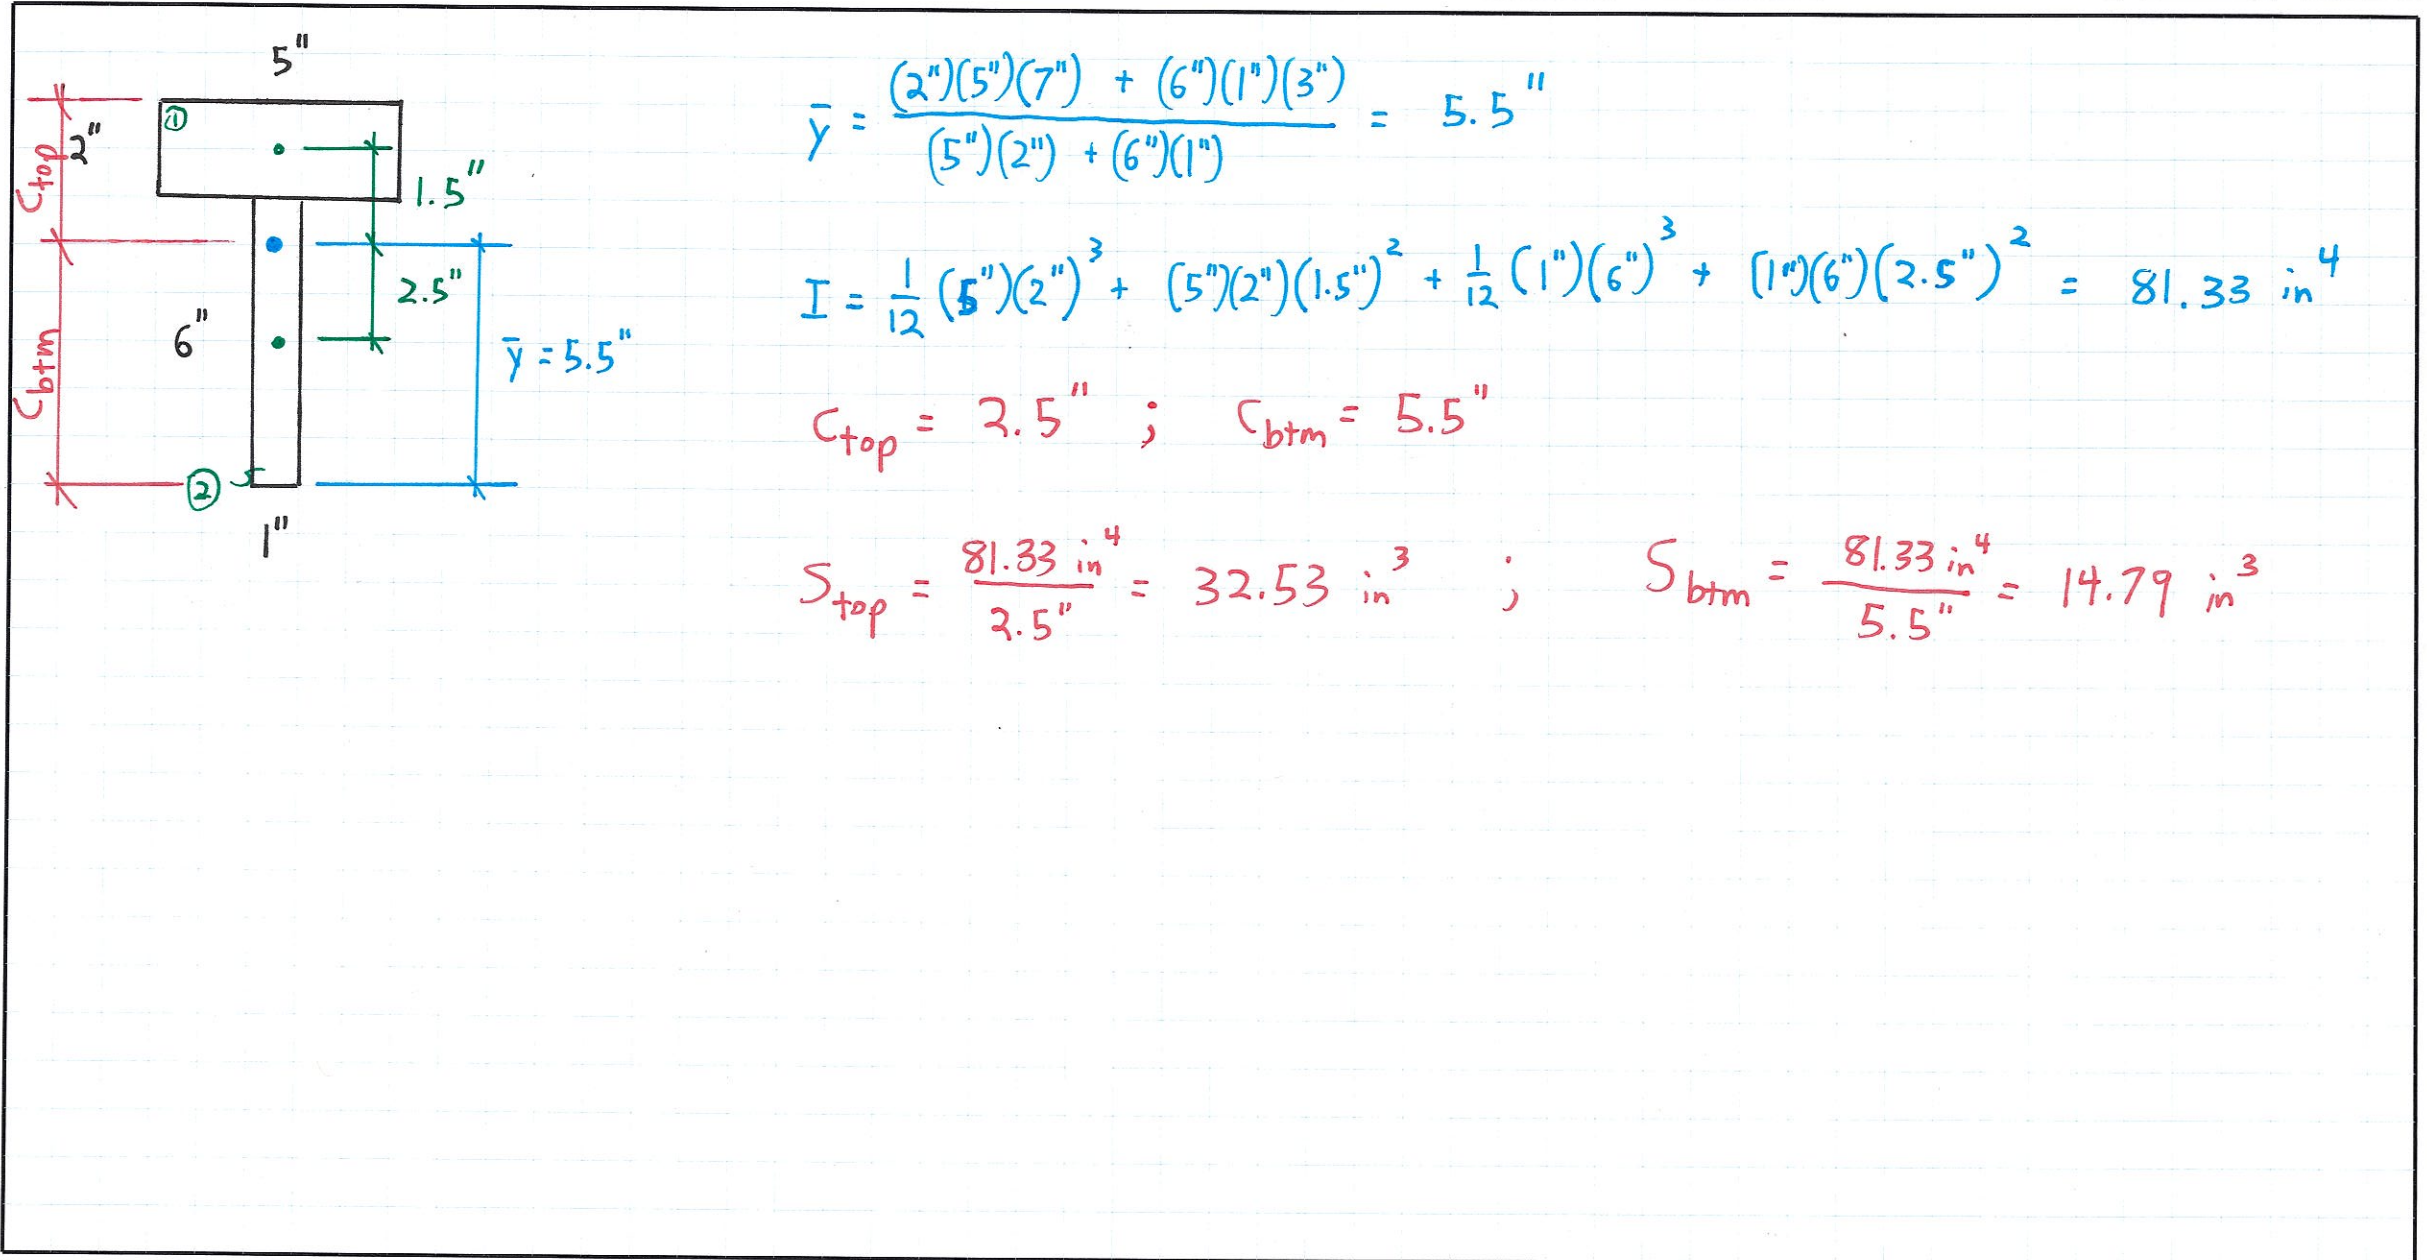 5"
①
2"
C top
1.5"
2.5"
6"
ȳ = 5.5"
C btm
②
1"
ȳ = (2")(5")(7") + (6")(1")(3") / (5")(2") + (6")(1") = 5.5"
I = 1/12 (5")(2")³ + (5")(2")(1.5")² + 1/12 (1")(6")³ + (1")(6")(2.5")² = 81.33 in⁴
C top = 2.5" ; C btm = 5.5"
S top = 81.33 in⁴ / 2.5" = 32.53 in³ ; S btm = 81.33 in⁴ / 5.5" = 14.79 in³